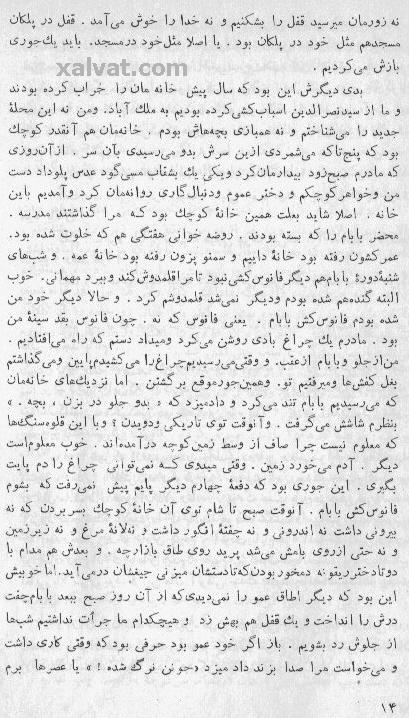 نه زورمان میرسید قفل را بشکنیم و نه خدا را خوش می‌آمد . قفل در پلکان
مسجدهم مثل خود در پلکان بود . یا اصلا مثل خود درمسجد. باید یك‌جوری
بازش می‌کردیم .
xalvat.com
بدی دیگرش این بود که سال پیش خانه مان را خراب کرده بودند
و ما از سیدنصرالدین اسباب‌کشی‌کرده بودیم به ملك آباد. ومن نه این محلهٔ
جدید را می‌شناختم و نه همبازی بچه‌هاش بودم . خانه‌مان هم آنقدر کوچك
بود که پنج‌تاکه می‌شمردی ازین سرش بدو می‌رسیدی بآن سر . ازآن‌روزی
که مادرم صبح‌زود بیدارمان‌کرد ویکی یك بشقاب مسی‌گود عدس پلوداد دست
من وخواهرکوچکم و دختر عموم ودنبال‌گاری روانه‌مان کرد وآمدیم باین
خانه . اصلا شاید بعلت همین خانهٔ کوچك بود که مرا گذاشتند مدرسه .
محضر بابام را که بسته بودند . روضه خوانی هفتگی هم که خلوت شده بود.
عمرکشون رفته بود خانهٔ داییم و سمنو پزون رفته بود خانهٔ عمه . و شب‌های
شنبهٔ‌دورهٔ بابام‌هم دیگرفانوس‌کشی‌نبود تامرا قلمدوش‌کند وببرد مهمانی. خوب
البته گنده‌هم شده بودم ودیگر نمی‌شد قلمدوشم کرد . و حالا دیگر خود من
شده بودم فانوس‌کش بابام . یعنی فانوس که نه . چون فانوس بقد سینهٔ من
بود . مادرم یك چراغ بادی روشن می‌کرد ومیداد دستم که راه می‌افتادیم .
من‌ازجلو وبابام ازعقب. و وقتی‌می‌رسیدیم‌چراغ‌را می‌کشیدم‌پایین ومی‌گذاشتم
بغل کفش‌ها ومیرفتیم تو. وهمین‌جورموقع برگشتن . اما نزدیك‌های خانه‌مان
که می‌رسیدیم بابام تند می‌کرد و دادمیزد که « بدو جلو در بزن ، بچه . »
بنظرم شاشش می‌گرفت . وآنوقت توی تاریکی ودویدن ؟ وبا این قلوه‌سنگ‌ها
که معلوم نیست چرا صاف از وسط زمین‌کوچه درآمده‌اند . خوب معلوم‌است
دیگر . آدم می‌خورد زمین . وقتی میدوی که نمی‌توانی چراغ را دم پایت
بگیری . این جوری بود که دفعهٔ چهارم دیگر پایم پیش نمی‌رفت که بشوم
فانوس‌کش بابام . آنوقت صبح تا شام توی آن خانهٔ کوچك بسربردن که نه
بیرونی داشت نه اندرونی و نه جفتهٔ انگور داشت و نه‌لانهٔ مرغ و نه زیرزمین
و نه حتی ازروی بامش می‌شد پرید روی طاق بازارچه . و بعدش هم مدام با
دوتادختر بودن‌که‌تادستشان میزنی جیغشان درمی‌آید.اماخوبیش
این بود که دیگر اطاق عمو را نمی‌دیدی‌که از آن روز صبح ببعد بابام‌چفت
درش را انداخت و یك قفل هم بهش زد و هیچکدام ما جرأت نداشتیم شب‌ها
از جلوش رد بشویم . باز اگر خود عمو بود حرفی بود که وقتی کاری داشت
و می‌خواست مرا صدا بزند داد میزد «جونن نرگ شده ! » یا عصرها برم
۱۴